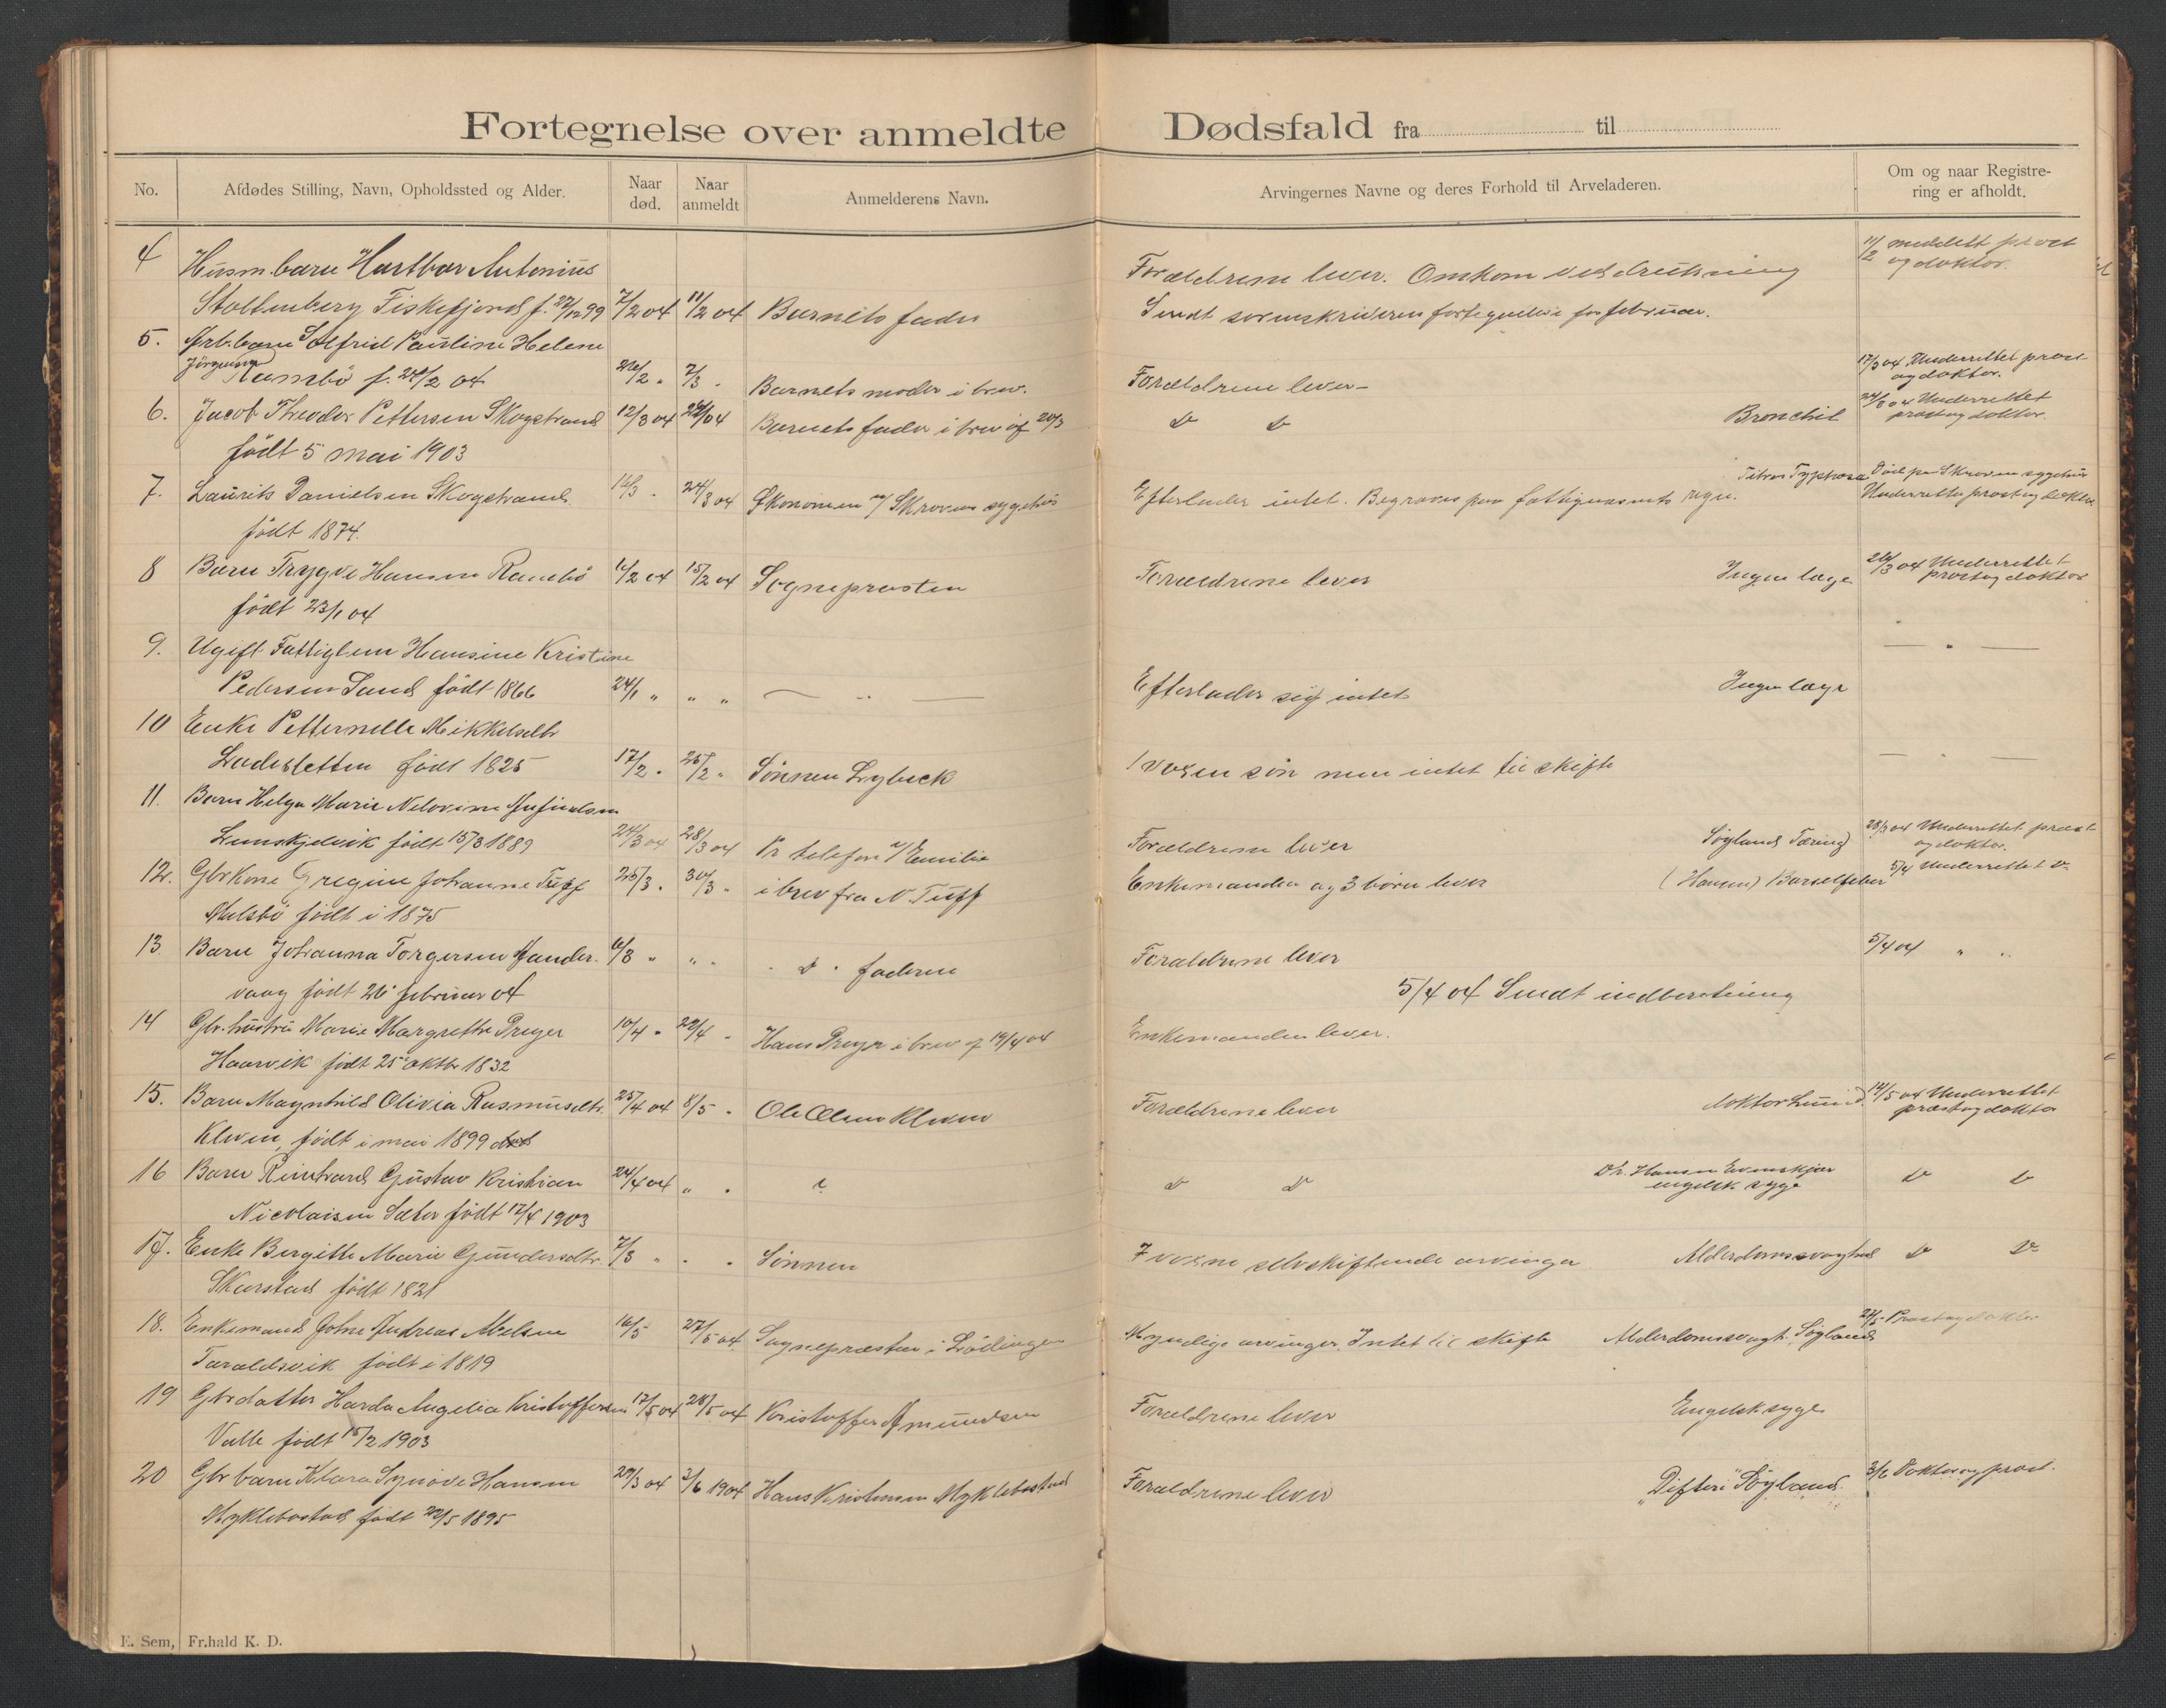 Fortegnelse over anmeldte Dødsfald fra til
No.
Afdødes Stilling, Navn, Opholdssted og Alder.
Naar død.
Naar anmeldt
Anmelderens Navn.
Arvingernes Navne og deres Forhold til Arveladeren.
Om og naar Registre-
ring er afholdt.
4 Husm.barn Hartvar Antonius
11/2 meddelt prost
og doktor.
Stoltenberg Fiskefjord f. 27/12 99 7/2 04 11/2 04 Barnets fader
Forældrene lever. Omkom ved drukning
Sendt sorenskriveren fortegnelse for februar.
5. Arb.barn Solfrid Pauline Helene
Jörgensen Rambö f. 24/2 04 26/2 " 7/3 " Barnets moder i brev. Forældrene lever - 17/3 04 Underrettet prost
og doktor.
6. Jacob Theodor Pettersen Skogstrand 12/3 04 24/3 04 Barnets fader i brev af 20/3 Do Do Bronchit 24/3 04 Underrettet
prost og doktor.
født 5 mai 1903
7. Laurits Danielsen Skogstrand 16/3 " 24/3 04 Økonomen v/ Skroven sygehus Efterlader intet. Begraves paa fattigvæsnets regn. Febris Typhosa Död paa Skroven sygehus
Underrettet prost og doktor.
født 1874.
8 Barn Trygve Hansen Rambö 6/2 04 15/2 04 Sognepresten Forældrene lever Ingen læge 26/3 04 Underrettet
prost og doktor
født 23/1 04
9. Ugift Fattiglem Hansine Kristine
Pedersen Sand født 1866 24/1 " " " — " — Efterlader sig intet Ingen læge — " —
10 Enke Petternelle Mikkelsdtr
Ladesletten født 1825 17/2 " 25/2 " Sönnen Lybeck 1 voxen sön men intet til skifte — " —
11. Barn Helga Marie Nelovine Anfindsen
Lenskjelvik født 15/3 1889 24/3 04 28/3 04 Pr telefon v/ Emilie Forældrene lever Søyland Tæring 28/3 04 Underrettet præst
og doktor.
12. Gbr Kone Gregine Johanne Tuff 25/3 " 30/3 " i brev fra N. Tuff Enkemanden og 3 børn lever (Hansen) Barselfeber 5/4 Underrettet Do
født i 1875
13. Barn Johanna Torgersen Sander- 6/3 " " " " Do " faderen Forældrene lever 5/4 04 " "
vaag født 26 februar 04
5/4 04 Sendt indberetning
14 Gbr. hustru Marie Margrethe Dreyer 10/4 " 22/4 " Hans Dreyer i brev af 19/4 04 Enkemanden lever.
Haarvik født 25 oktbr 1832
15. Barn Magnhild Olivia Rasmusdtr. 25/4 04 8/5 " Ole Olsen Kleven Forældrene lever doktor Lund 14/5 04 Underrettet
præst og doktor
Kleven, født i mai 1899
16 Barn Reinhard Gustav Kristian 24/4 04 " " Forældrene Do Do Dr. Hansen Evenskjær
engelsk syge Do Do
Nicolaisen Sæter født 12/4 1903
17. Enke Bergitte Marie Gundersdtr. 7/3 " " " Sönnen 7 voxne selvskiftende arvinger Alderdomssvaghed Do Do
Skarstad født 1821
18. Enkemand Johan Andreas Nielsen 16/5 27/5 04 Sognepræsten i Lödingen Myndige arvinger. Intet til skifte Alderdomssvagh. Søyland 27/5 Præst og doktor
Taraldsvik født i 1819
19 Gbr datter Harda Angelia Kristoffersen 17/5 04 28/5 04 Kristoffer Amundsen Forældrene lever Engelsk syge
Valle født 15/2 1903
20 Gbr barn Klara Synöve Hansen 29/3 04 3/6 1904 Hans Kristensen Myklebostad Forældrene lever "Difteri" Søyland 3/6 Doktor og prost.
Myklebostad født 22/5 1895
E. Sem, Fr.hald K. D.